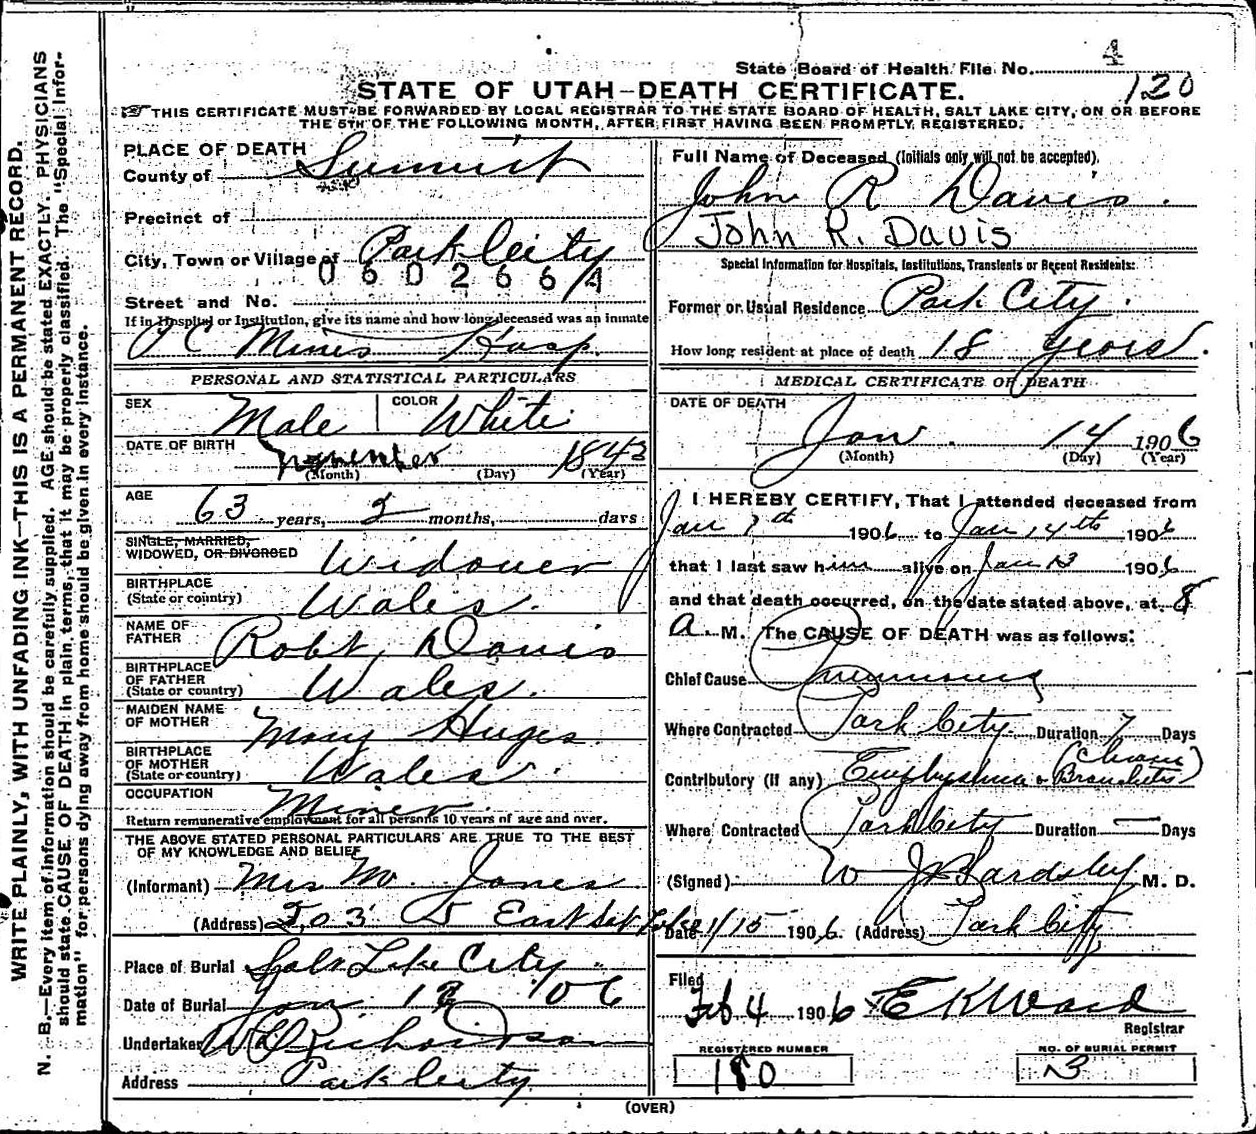 State Board of Health File No. 4
120
STATE OF UTAH—DEATH CERTIFICATE.
THIS CERTIFICATE MUST BE FORWARDED BY LOCAL REGISTRAR TO THE STATE BOARD OF HEALTH, SALT LAKE CITY, ON OR BEFORE
THE 5TH OF THE FOLLOWING MONTH, AFTER FIRST HAVING BEEN PROMPTLY REGISTERED.
WRITE PLAINLY, WITH UNFADING INK—THIS IS A PERMANENT RECORD.
N. B.—Every item of information should be carefully supplied. AGE should be stated EXACTLY. PHYSICIANS
should state CAUSE OF DEATH in plain terms, that it may be properly classified. The "Special Infor-
mation" for persons dying away from home should be given in every instance.
PLACE OF DEATH
County of Summit
Precinct of
City, Town or Village of Park City
060266
Street and No.
If in Hospital or Institution, give its name and how long deceased was an inmate
Mines Hosp.
PERSONAL AND STATISTICAL PARTICULARS
SEX Male COLOR White
DATE OF BIRTH 1843
(Month) (Day) (Year)
AGE 63 years, 2 months, days
SINGLE, MARRIED,
WIDOWED, OR DIVORSED Widower
BIRTHPLACE
(State or country) Wales.
NAME OF
FATHER Robt Davis
BIRTHPLACE
OF FATHER
(State or country) Wales.
MAIDEN NAME
OF MOTHER Mary Huges
BIRTHPLACE
OF MOTHER
(State or country) Wales.
OCCUPATION Miner
Return remunerative employment for all persons 10 years of age and over.
THE ABOVE STATED PERSONAL PARTICULARS ARE TRUE TO THE BEST
OF MY KNOWLEDGE AND BELIEF
(Informant) Mrs M. Jones
(Address) East
Place of Burial Salt Lake City
Date of Burial Jan 06
Undertaker Richardson
Address Park City
Full Name of Deceased (Initials only will not be accepted).
John R Davis.
John R. Davis
Special Information for Hospitals, Institutions, Transients or Recent Residents:
Former or Usual Residence Park City.
How long resident at place of death 18 Years.
MEDICAL CERTIFICATE OF DEATH
DATE OF DEATH
Jan. 14 1906
(Month) (Day) (Year)
I HEREBY CERTIFY, That I attended deceased from
Jan 1906 to Jan 14th 1906
that I last saw him alive on Jan 13 1906
and that death occurred, on the date stated above, at 8
a. M. The CAUSE OF DEATH was as follows:
Chief Cause Pneumonia
Where Contracted Park City Duration 7 Days
Contributory (if any) Emphysema
Where Contracted Park City Duration — Days
(Signed) W J Bardsley M. D.
Date 1/15 1906. (Address) Park City
Filed
Feb 4 1906 E K Ward
Registrar
REGISTERED NUMBER
180
NO. OF BURIAL PERMIT
3
(OVER)